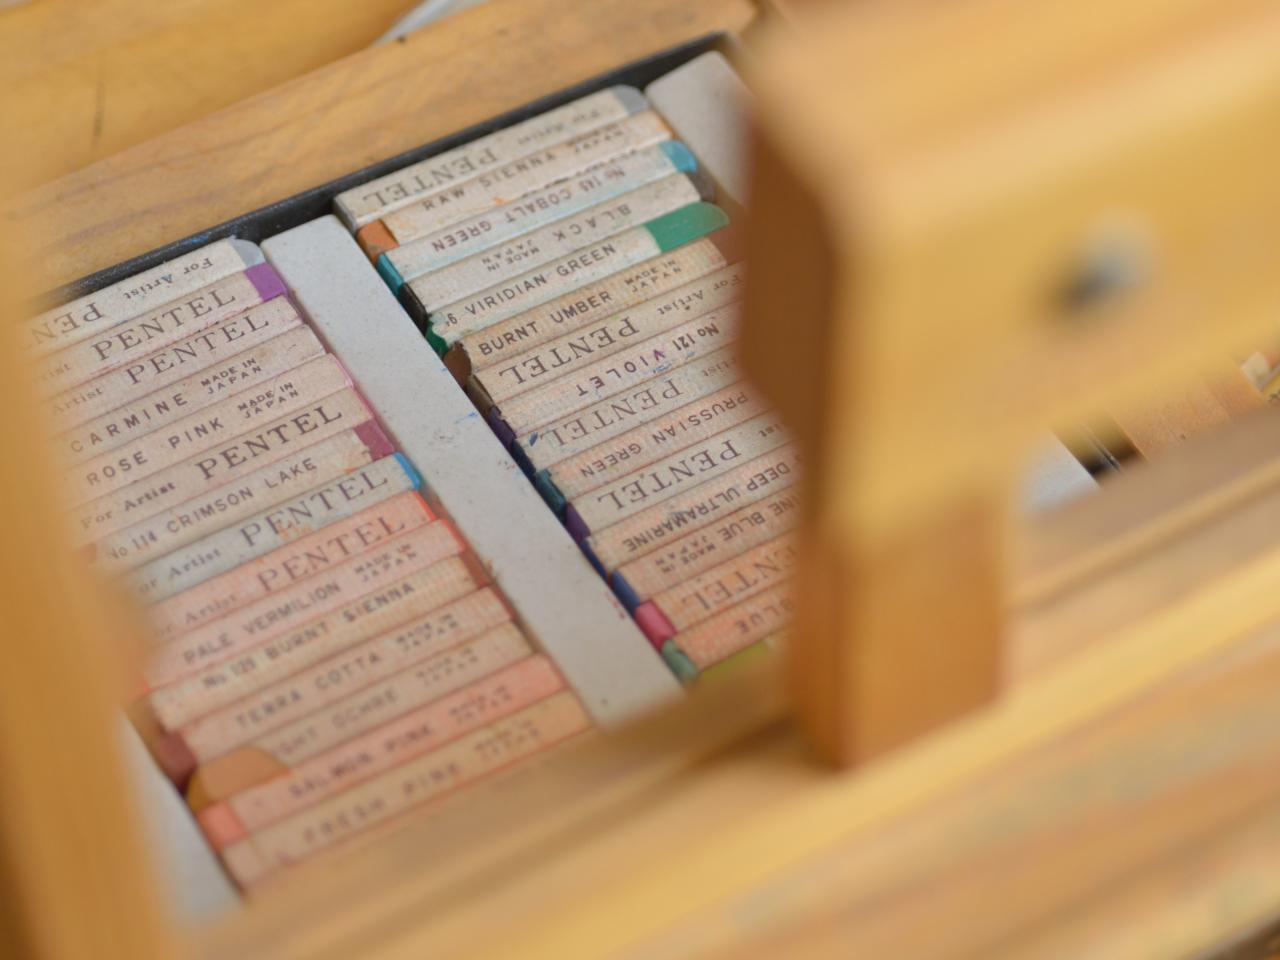 For Artist PEN
PENTEL
Artist PENTEL
CARMINE MADE IN JAPAN
ROSE PINK MADE IN JAPAN
For Artist PENTEL
No 114 CRIMSON LAKE
or Artist PENTEL
Artist PENTEL
PALE VERMILION MADE IN JAPAN
No 129 BURNT SIENNA
TERRA COTTA MADE IN JAPAN
GHT OCHRE MADE IN JAPAN
SALMON PINK MADE IN JAPAN
FRESH PINK MADE IN JAPAN
For Artist PENTEL
RAW SIENNA MADE IN JAPAN
No 145 COBALT GREEN
BLACK MADE IN JAPAN
VIRIDIAN GREEN
BURNT UMBER MADE IN JAPAN
For Artist PENTEL
No 121 VIOLET
PENTEL
PRUSSIAN GREEN
ist PENTEL
DEEP ULTRAMARINE
NE BLUE MADE IN JAPAN
ENTEL
BLUE